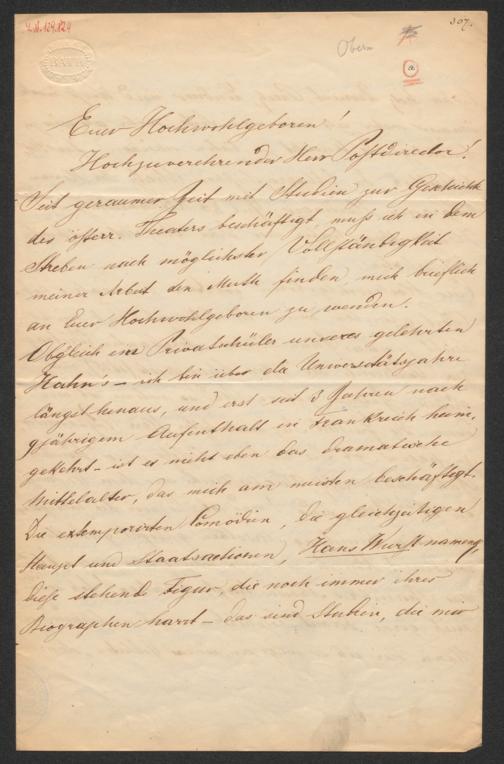 I.N. 129.124
307.
BATH
Obern
a
Euer Hochwohlgeboren!
Hochzuverehrender Herr Postdirector!
Seit geraumer Zeit mit Studien zur Geschichte
des österr. Theaters beschäftigt, muß ich in dem
Streben nach möglichster Vollständigkeit
meiner Arbeit den Muth finden, mich brieflich
an Euer Hochwohlgeboren zu wenden.
Obgleich ein Privatschüler unseres gelehrten
Hahn's – ich bin über die Universitätsjahre
längst hinaus, und erst seit 3 Jahren nach
9jährigem Aufenthalt in Frankreich heim,
gekehrt – ist es nicht eben das dramatische
Mittelalter, das mich am meisten beschäftigt.
Die extemporirten Comödien, die gleichzeitigen
Haupt und Staatsactionen, Hans Wurst nament,
diese stehende Figur, die noch immer ihres
Biographen harrt – das sind Studien, die mir